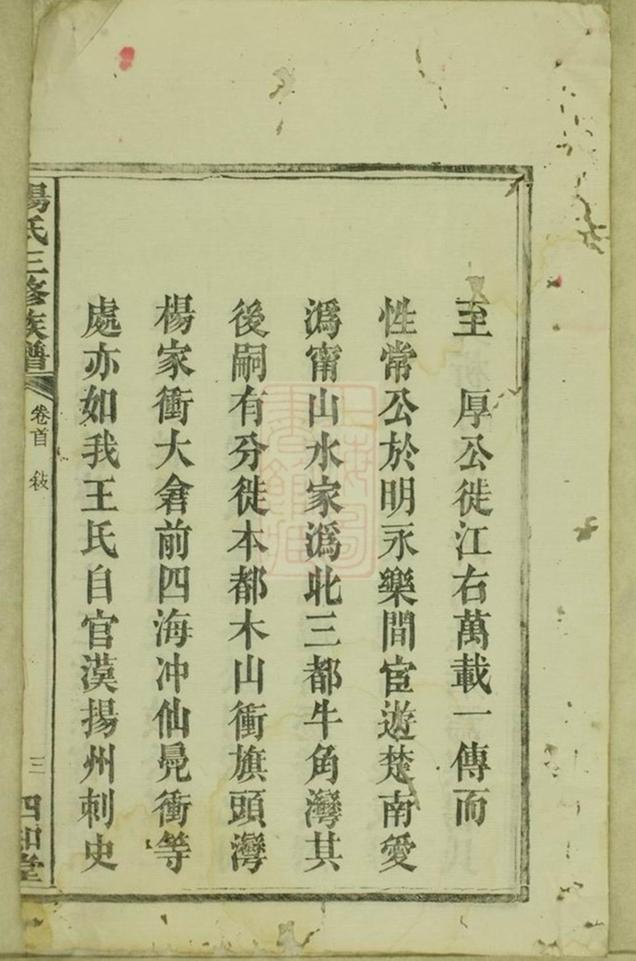 至　厚公徙江右萬載一傳而
性常公於明永樂間宦遊楚南愛
潙甯山水家潙北三都牛角灣其
後嗣有分徙本都木山衝旗頭灣
楊家衝大倉前四海冲仙鳧衝等
處亦如我王氏自官漠揚州刺史
楊氏三修族譜
卷首 敍
三
四知堂